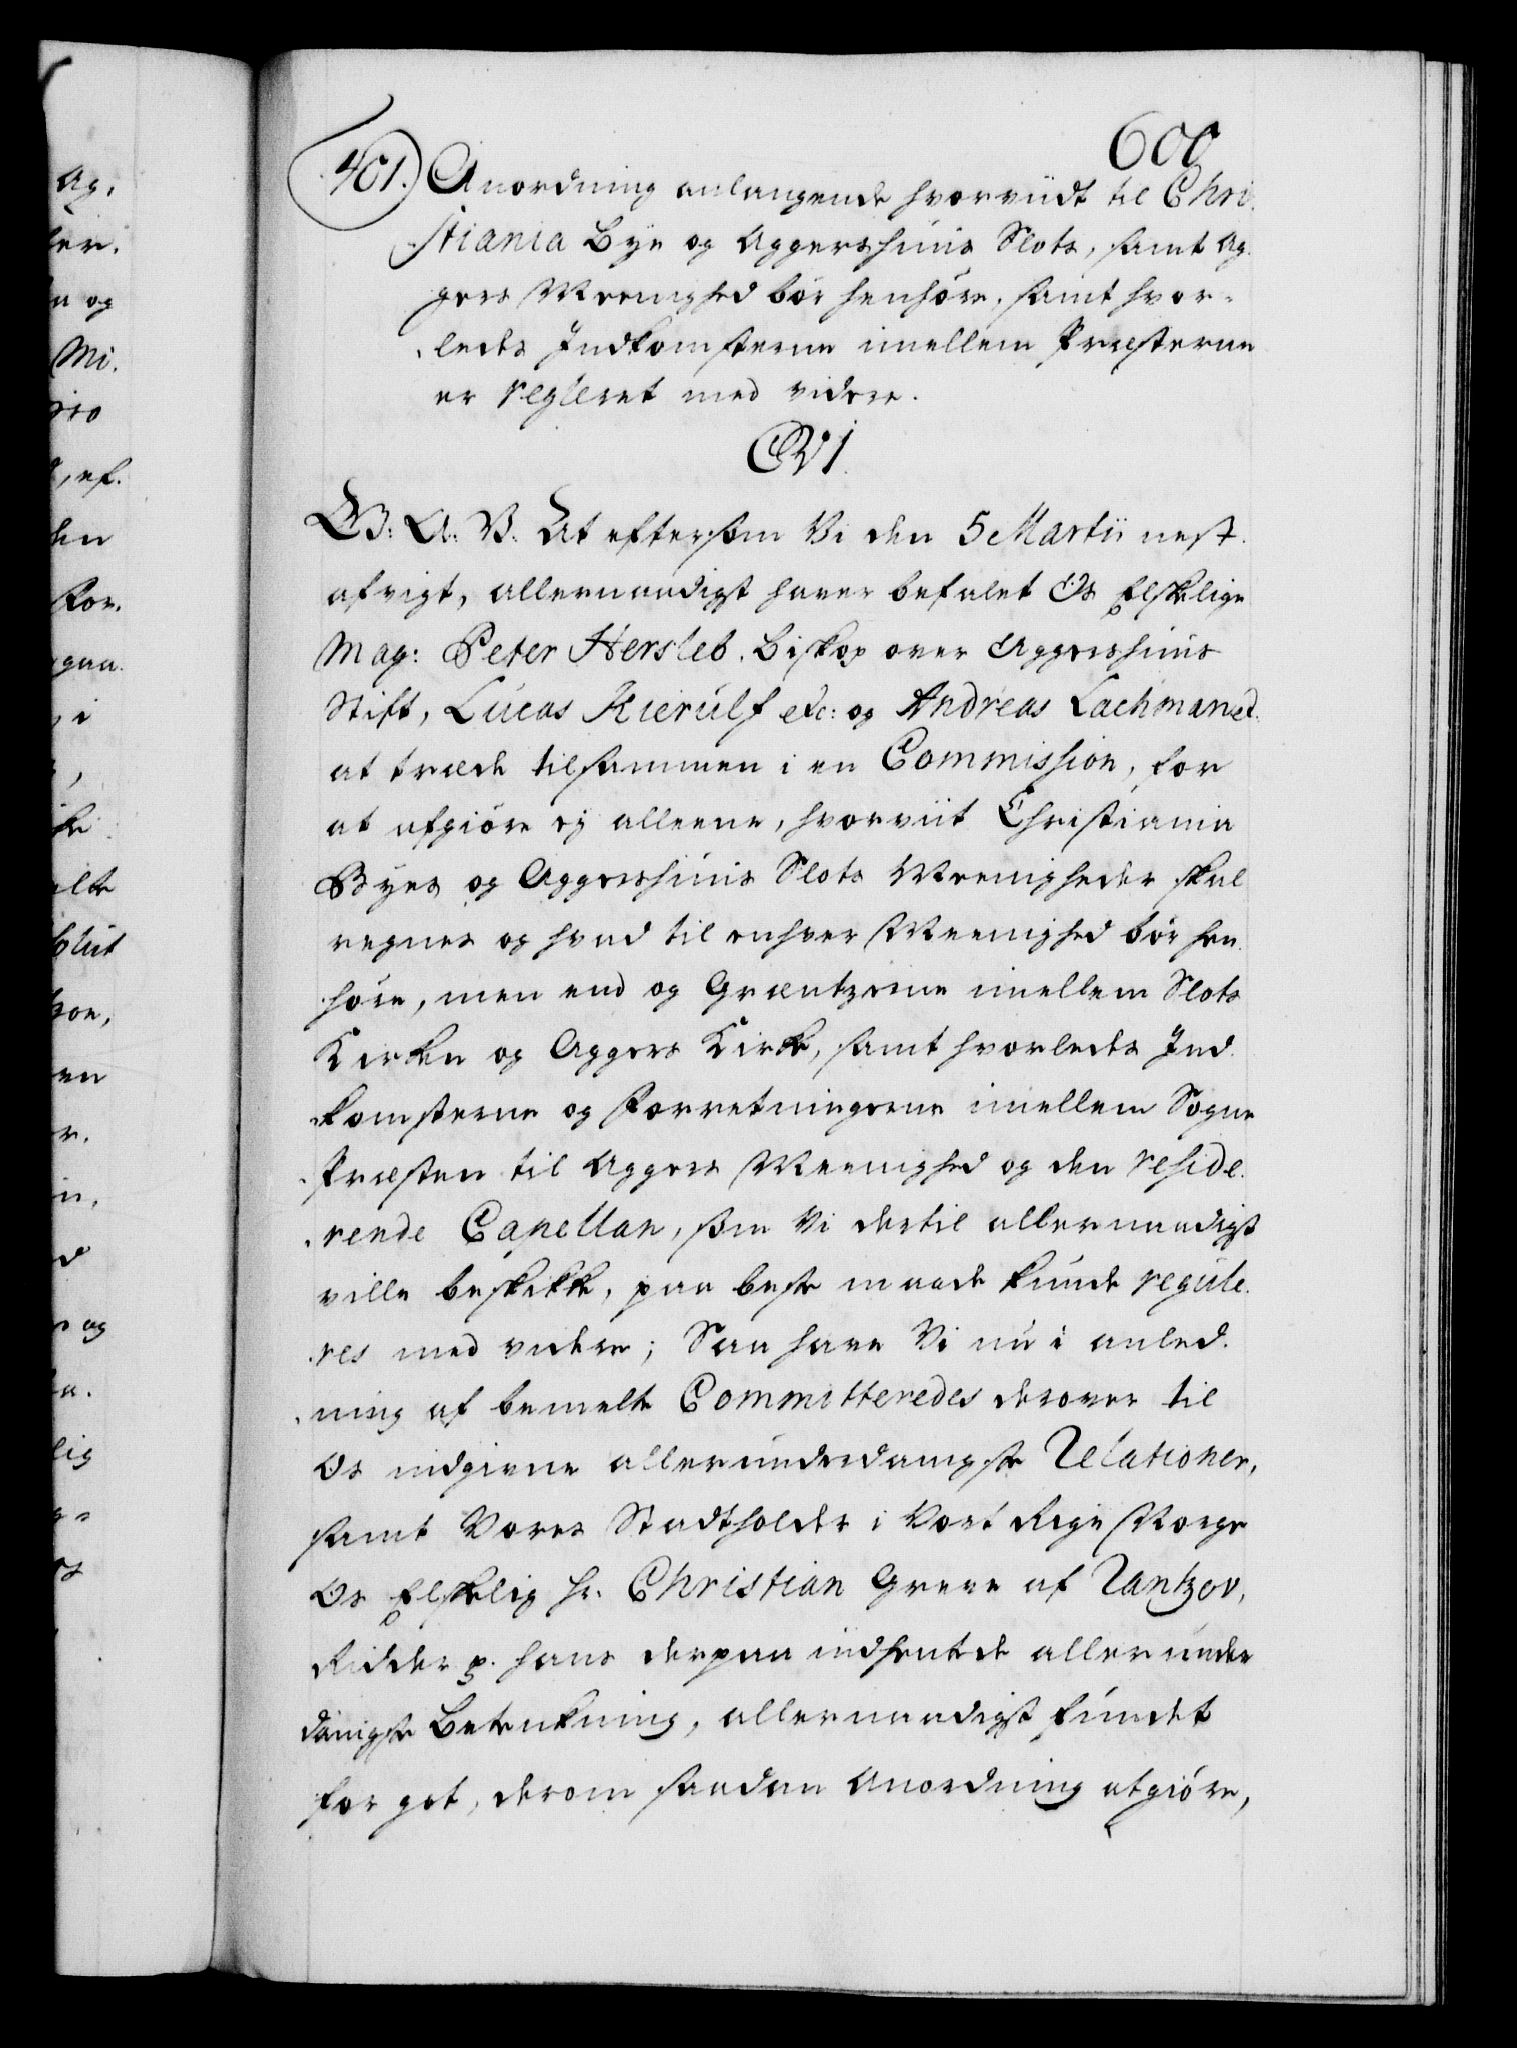 600
401. Anordning anlangende hvorviidt til Chri-
stiania Bye og Aggershuus Slots, samt Ag-
gers Meenighed bør henhøre, samt hvor-
ledes Indkomsterne imellem Præsterne
er regleret med videre.
C VI.
G: A: V: At eftersom Vi den 5 Martii nest-
afvigt, allernaadigst haver befalet Os Elskelige
Mag: Peter Hersleb, Biskop over Aggershuus
Stift, Lucas Kierulf etc: og Andreas Lachman etc.
at træde tilsammen i en Commission, for
at afgiøre ej alleene, hvorviit Christiania
Byes og Aggershuus Slots Meenigheder skal
regnes og hvad til enhver Meenighed bør hen-
høre, men end og Grentzerne imellem Slots
Kirken og Aggers Kirke, samt hvorledes Ind-
komsterne og Forretningerne imellem Sogne
Præsten til Aggers Meenighed og den reside-
rende Capellan, som Vi dertil allernaadigst
ville beskikke, paa beste maade kunde regule-
res med videre; Saa have Vi nu i anled-
ning af bemelte Committeredes derover til
Os indgivne allerunderdanigste Relationer,
samt Vores Stadtholder i Vort Rige Norge
Os Elskelig Hr. Christian Greve af Rantzov,
Ridder p. hans derpaa indhentede allerunder
danigste Betenkning, allernaadigst fundet
for got, derom saadan Anordning atgiøre,